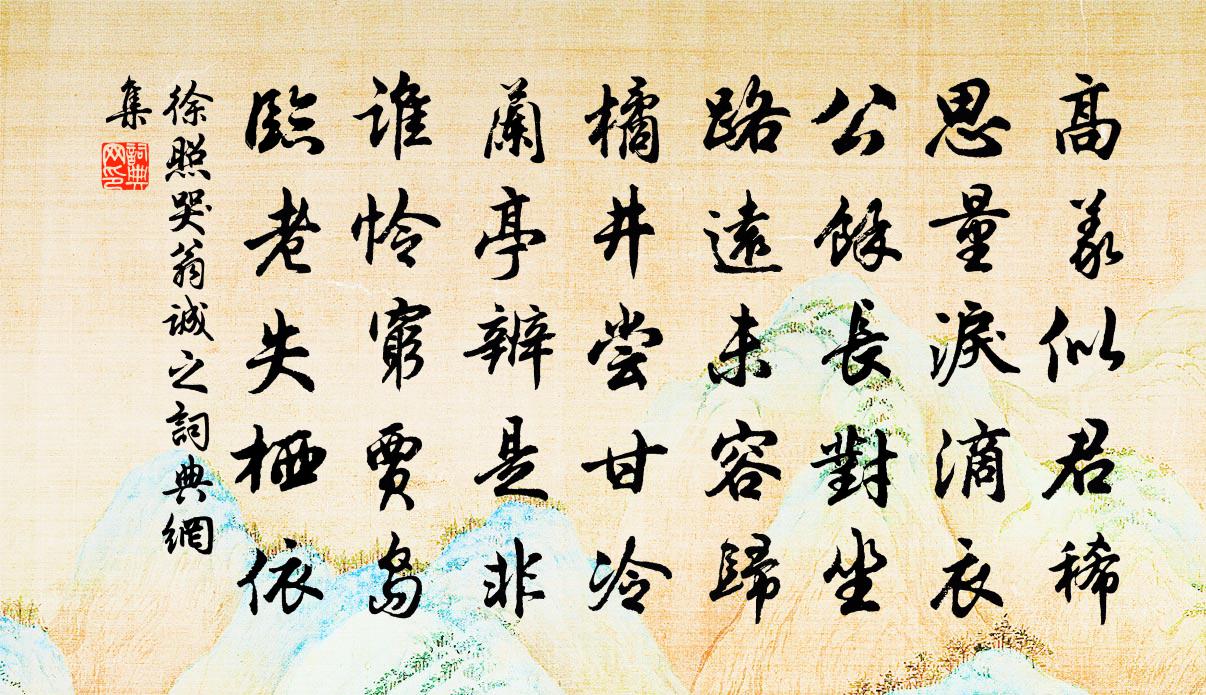 高義似君稀
思量淚滴衣
公餘長對坐
路遠未容歸
橘井嘗甘冷
蘭亭辨是非
誰怜窮賈島
臨老失栖依
徐照哭翁誠之詞典網
集
詞典網印